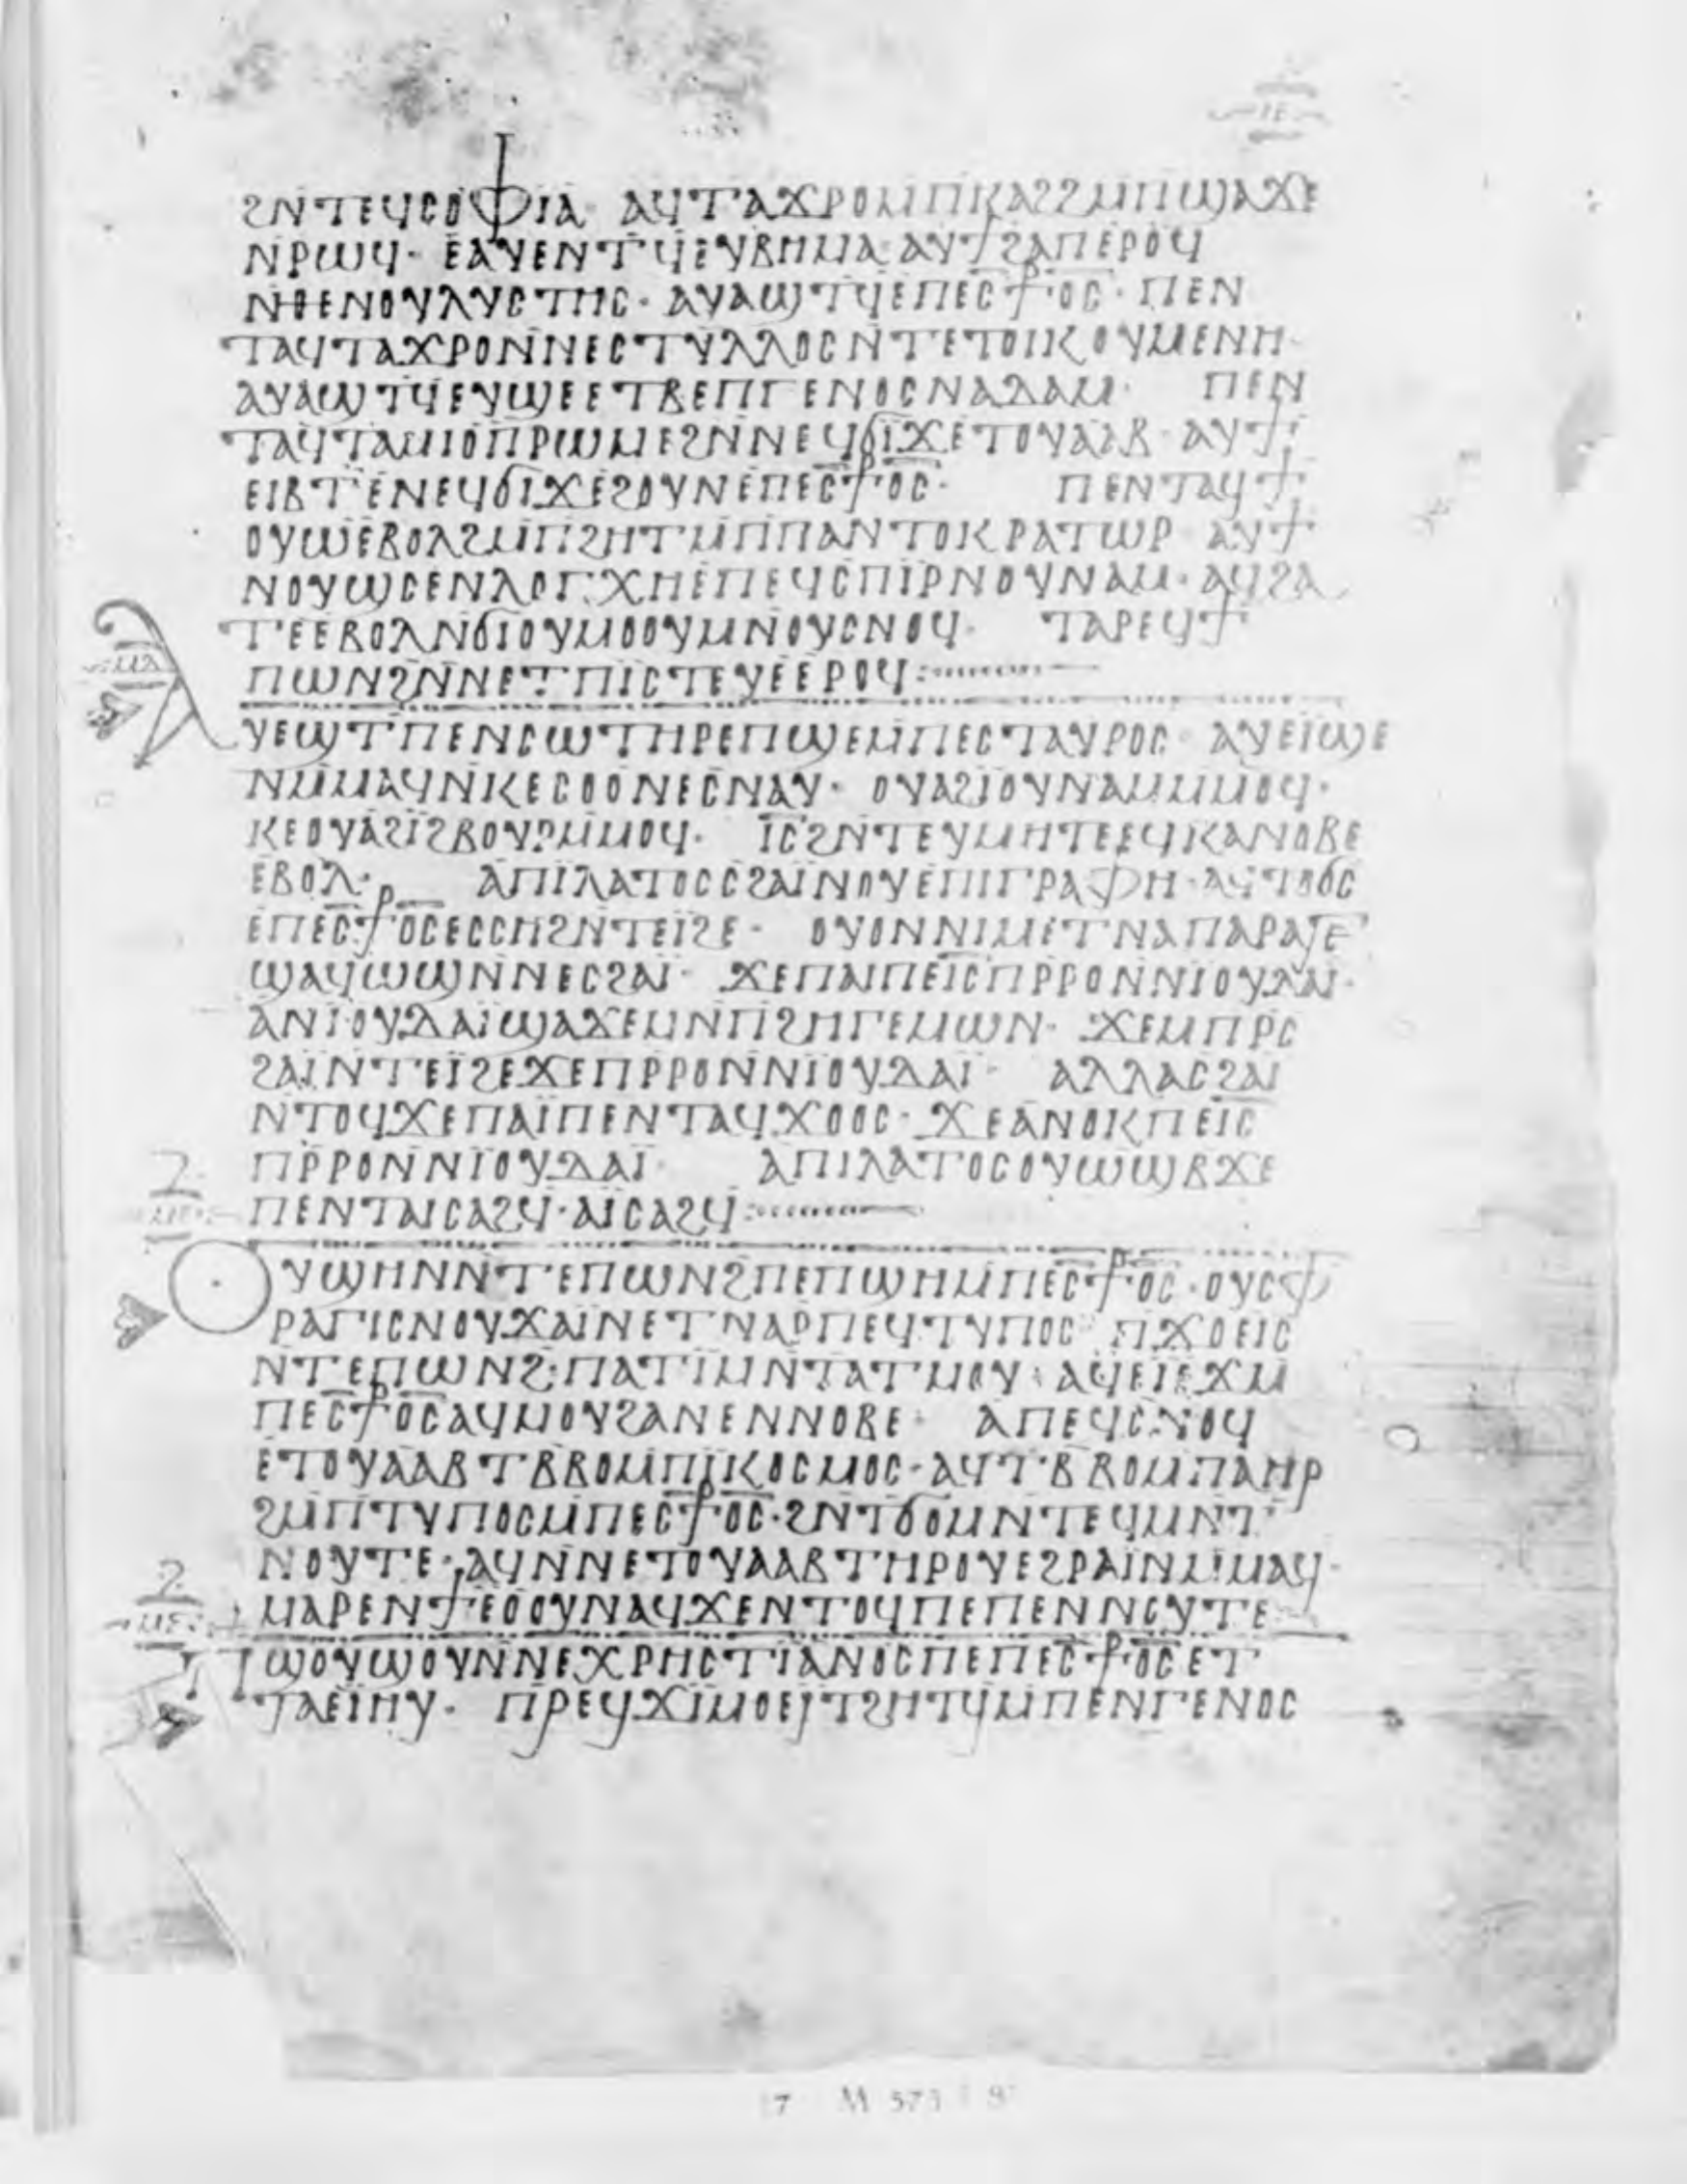 ⲓⲉ
ϩⲛⲧⲉϥⲥⲟⲫⲓⲁ· ⲁϥⲧⲁϫⲣⲟⲙⲡⲕⲁϩϩⲙⲡϣⲁϫⲉ
ⲛⲣⲱϥ· ⲉⲁⲩⲉⲛⲧϥⲉⲩⲃⲏⲙⲁ· ⲁⲩϯϩⲁⲡⲉⲣⲟϥ
ⲛⲑⲉⲛⲟⲩⲗⲩⲥⲧⲏⲥ· ⲁⲩⲁϣⲧϥⲉⲡⲉⲥ⳨ⲟⲥ· ⲡⲉⲛ
ⲧⲁϥⲧⲁϫⲣⲟⲛ̄ⲛⲉⲥⲧⲩⲗⲗⲟⲥⲛ̄ⲧⲉⲧⲟⲓⲕⲟⲩⲙⲉⲛⲏ·
ⲁⲩⲁϣⲧϥⲉⲩϣⲉⲉⲧⲃⲉⲡⲅⲉⲛⲟⲥⲛⲁⲇⲁⲙ· ⲡⲉⲛ
ⲧⲁϥⲧⲁⲙⲓⲟⲡⲣⲱⲙⲉϩⲛ̄ⲛⲉϥϭⲓϫⲉⲧⲟⲩⲁⲁⲃ· ⲁⲩϯ
ⲉⲓⲃⲧⲉⲛⲉϥϭⲓϫⲉϩⲟⲩⲛⲉⲡⲉⲥ⳨ⲟⲥ· ⲡⲉⲛⲧⲁϥϯ
ⲟⲩⲱⲉⲃⲟⲗϩⲙ̄ⲡϩⲏⲧⲙ̄ⲡⲡⲁⲛⲧⲟⲕⲣⲁⲧⲱⲣ ⲁⲩϯ
ⲛⲟⲩⲱⲥⲉⲛⲗⲟⲅⲭⲏⲉⲡⲉϥⲥⲡⲓⲣⲛⲟⲩⲛⲁⲙ· ⲁϥϩⲁ
ⲧⲉⲉⲃⲟⲗⲛϭⲓⲟⲩⲙⲟⲟⲩⲙⲛⲟⲩⲥⲛⲟϥ· ⲧⲁⲣⲉϥϯ
ⲡⲱⲛϩⲛ̄ⲛⲉⲧⲡⲓⲥⲧⲉⲩⲉⲉⲣⲟϥ:
ⲙⲇ
ⲁⲩⲉϣⲧⲡⲉⲛⲥⲱⲧⲏⲣⲉⲡϣⲉⲙⲡⲉⲥⲧⲁⲩⲣⲟⲥ· ⲁⲩⲉⲓϣⲉ
ⲛⲙ̄ⲙⲁϥⲛ̄ⲕⲉⲥⲟⲟⲛⲉⲥⲛⲁⲩ· ⲟⲩⲁϩⲓⲟⲩⲛⲁⲙⲙ̄ⲙⲟϥ·
ⲕⲉⲟⲩⲁϩⲓϩⲃⲟⲩⲣⲙ̄ⲙⲟϥ· ⲓ̅ⲥ̅ϩⲛⲧⲉⲩⲙⲏⲧⲉⲉϥⲕⲁⲛⲟⲃⲉ
ⲉⲃⲟⲗ· ⲁⲡⲓⲗⲁⲧⲟⲥⲥϩⲁⲓ̈ⲛⲟⲩⲉⲡⲓⲅⲣⲁⲫⲏ· ⲁϥⲧⲟϭⲥ
ⲉⲡⲉⲥ⳨ⲟⲥⲉⲥⲥⲏϩⲛⲧⲉⲓ̈ϩⲉ· ⲟⲩⲟⲛⲛⲓⲙⲉⲧⲛⲁⲡⲁⲣⲁⲅⲉ
ϣⲁϥⲱϣⲛ̄ⲛⲉⲥϩⲁⲓ̈· ϫⲉⲡⲁⲓⲡⲉⲓ̅ⲥ̅ⲡⲣⲣⲟⲛ̄ⲛⲓⲟⲩⲇⲁⲓ·
ⲁⲛⲓⲟⲩⲇⲁⲓ̈ϣⲁϫⲉⲙⲛ̄ⲡϩⲏⲅⲉⲙⲱⲛ· ϫⲉⲙⲡⲣⲥ
ϩⲁⲓⲛⲧⲉⲓ̈ϩⲉϫⲉⲡⲣⲣⲟⲛ̄ⲛⲓ̈ⲟⲩⲇⲁⲓ̈· ⲁⲗⲗⲁⲥϩⲁⲓ
ⲛⲧⲟϥϫⲉⲡⲁⲓ̈ⲡⲉⲛⲧⲁϥϫⲟⲟⲥ· ϫⲉⲁⲛⲟⲕⲡⲉⲓ̅ⲥ̅
ⲡⲣⲣⲟⲛ̄ⲛⲓ̈ⲟⲩⲇⲁⲓ̈· ⲁⲡⲓⲗⲁⲧⲟⲥⲟⲩⲱϣⲃϫⲉ
ⲡⲉⲛⲧⲁⲓⲥⲁϩϥ· ⲁⲓ̈ⲥⲁϩϥ:
ⲟⲩϣⲏⲛⲛ̄ⲧⲉⲡⲱⲛϩⲡⲉⲡϣⲏⲙ̄ⲡⲉⲥ⳨ⲟⲥ· ⲟⲩⲥⲫ
ⲣⲁⲅⲓⲥⲛⲟⲩϫⲁⲓ̈ⲛⲉⲧⲛⲁⲣⲡⲉϥⲧⲩⲡⲟⲥ· ⲡϫⲟⲉⲓⲥ
ⲛⲧⲉⲡⲱⲛϩ· ⲡⲁⲧⲓⲙⲛ̄ⲧⲁⲧⲙⲟⲩ· ⲁϥⲉⲓⲉϫⲙ
ⲡⲉⲥ⳨ⲟⲥⲁϥⲙⲟⲩϩⲁⲛⲉⲛⲛⲟⲃⲉ· ⲁⲡⲉϥⲥⲛⲟϥ
ⲉⲧⲟⲩⲁⲁⲃⲧⲃⲃⲟⲙ̄ⲡⲓⲕⲟⲥⲙⲟⲥ· ⲁϥⲧⲃⲃⲟⲙⲡⲁⲏⲣ
ϩⲙ̄ⲡⲧⲩⲡⲟⲥⲙ̄ⲡⲉⲥ⳨ⲟⲥ· ϩⲛⲧϭⲟⲙⲛⲧⲉϥⲙⲛⲧ
ⲛⲟⲩⲧⲉ· ⲁϥⲛ̄ⲛⲉⲧⲟⲩⲁⲁⲃⲧⲏⲣⲟⲩⲉϩⲣⲁⲓⲛⲙ̄ⲙⲁϥ·
ⲙⲁⲣⲉⲛϯⲉⲟⲟⲩⲛⲁϥϫⲉⲛⲧⲟϥⲡⲉⲡⲉⲛⲛⲟⲩⲧⲉ
ⲡϣⲟⲩϣⲟⲩⲛ̄ⲛⲉⲭⲣⲏⲥⲧⲓ̈ⲁⲛⲟⲥⲡⲉⲡⲉⲥ⳨ⲟⲥⲉⲧ
ⲧⲁⲉⲓⲏⲩ· ⲡⲣⲉϥϫⲓⲙⲟⲉⲓⲧϩⲏⲧϥⲙ̄ⲡⲉⲛⲅⲉⲛⲟⲥ